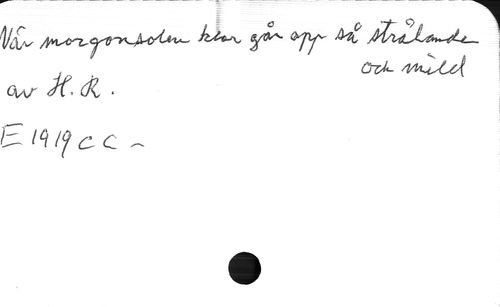 När morgonsolen klar går opp så strålande
och mild
av H. R.
E 1919 c c -